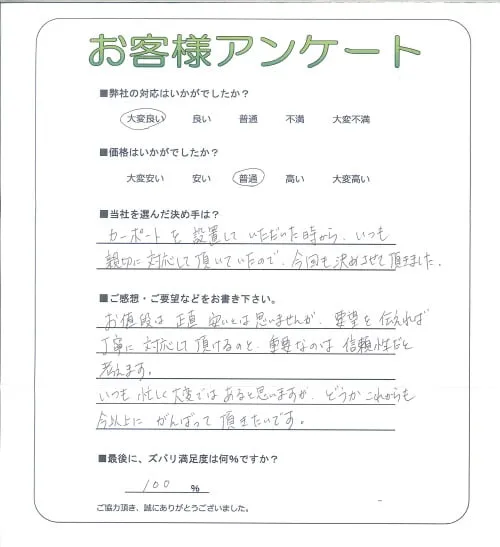 お客様アンケート
■弊社の対応はいかがでしたか？
大変良い 良い 普通 不満 大変不満
■価格はいかがでしたか？
大変安い 安い 普通 高い 大変高い
■当社を選んだ決め手は？
カーポートを設置していただいた時から、いつも
親切に対応して頂いていたので、今回も決めさせて頂きました。
■ご感想・ご要望などをお書き下さい。
お値段は正直安いとは思いませんが、要望を伝えれば
丁寧に対応して頂けるのと、重要なのは信頼性だと
考えます。
いつも忙しく大変ではあると思いますが、どうかこれからも
今以上にがんばって頂きたいです。
■最後に、ズバリ満足度は何％ですか？
100 ％
ご協力頂き、誠にありがとうございました。